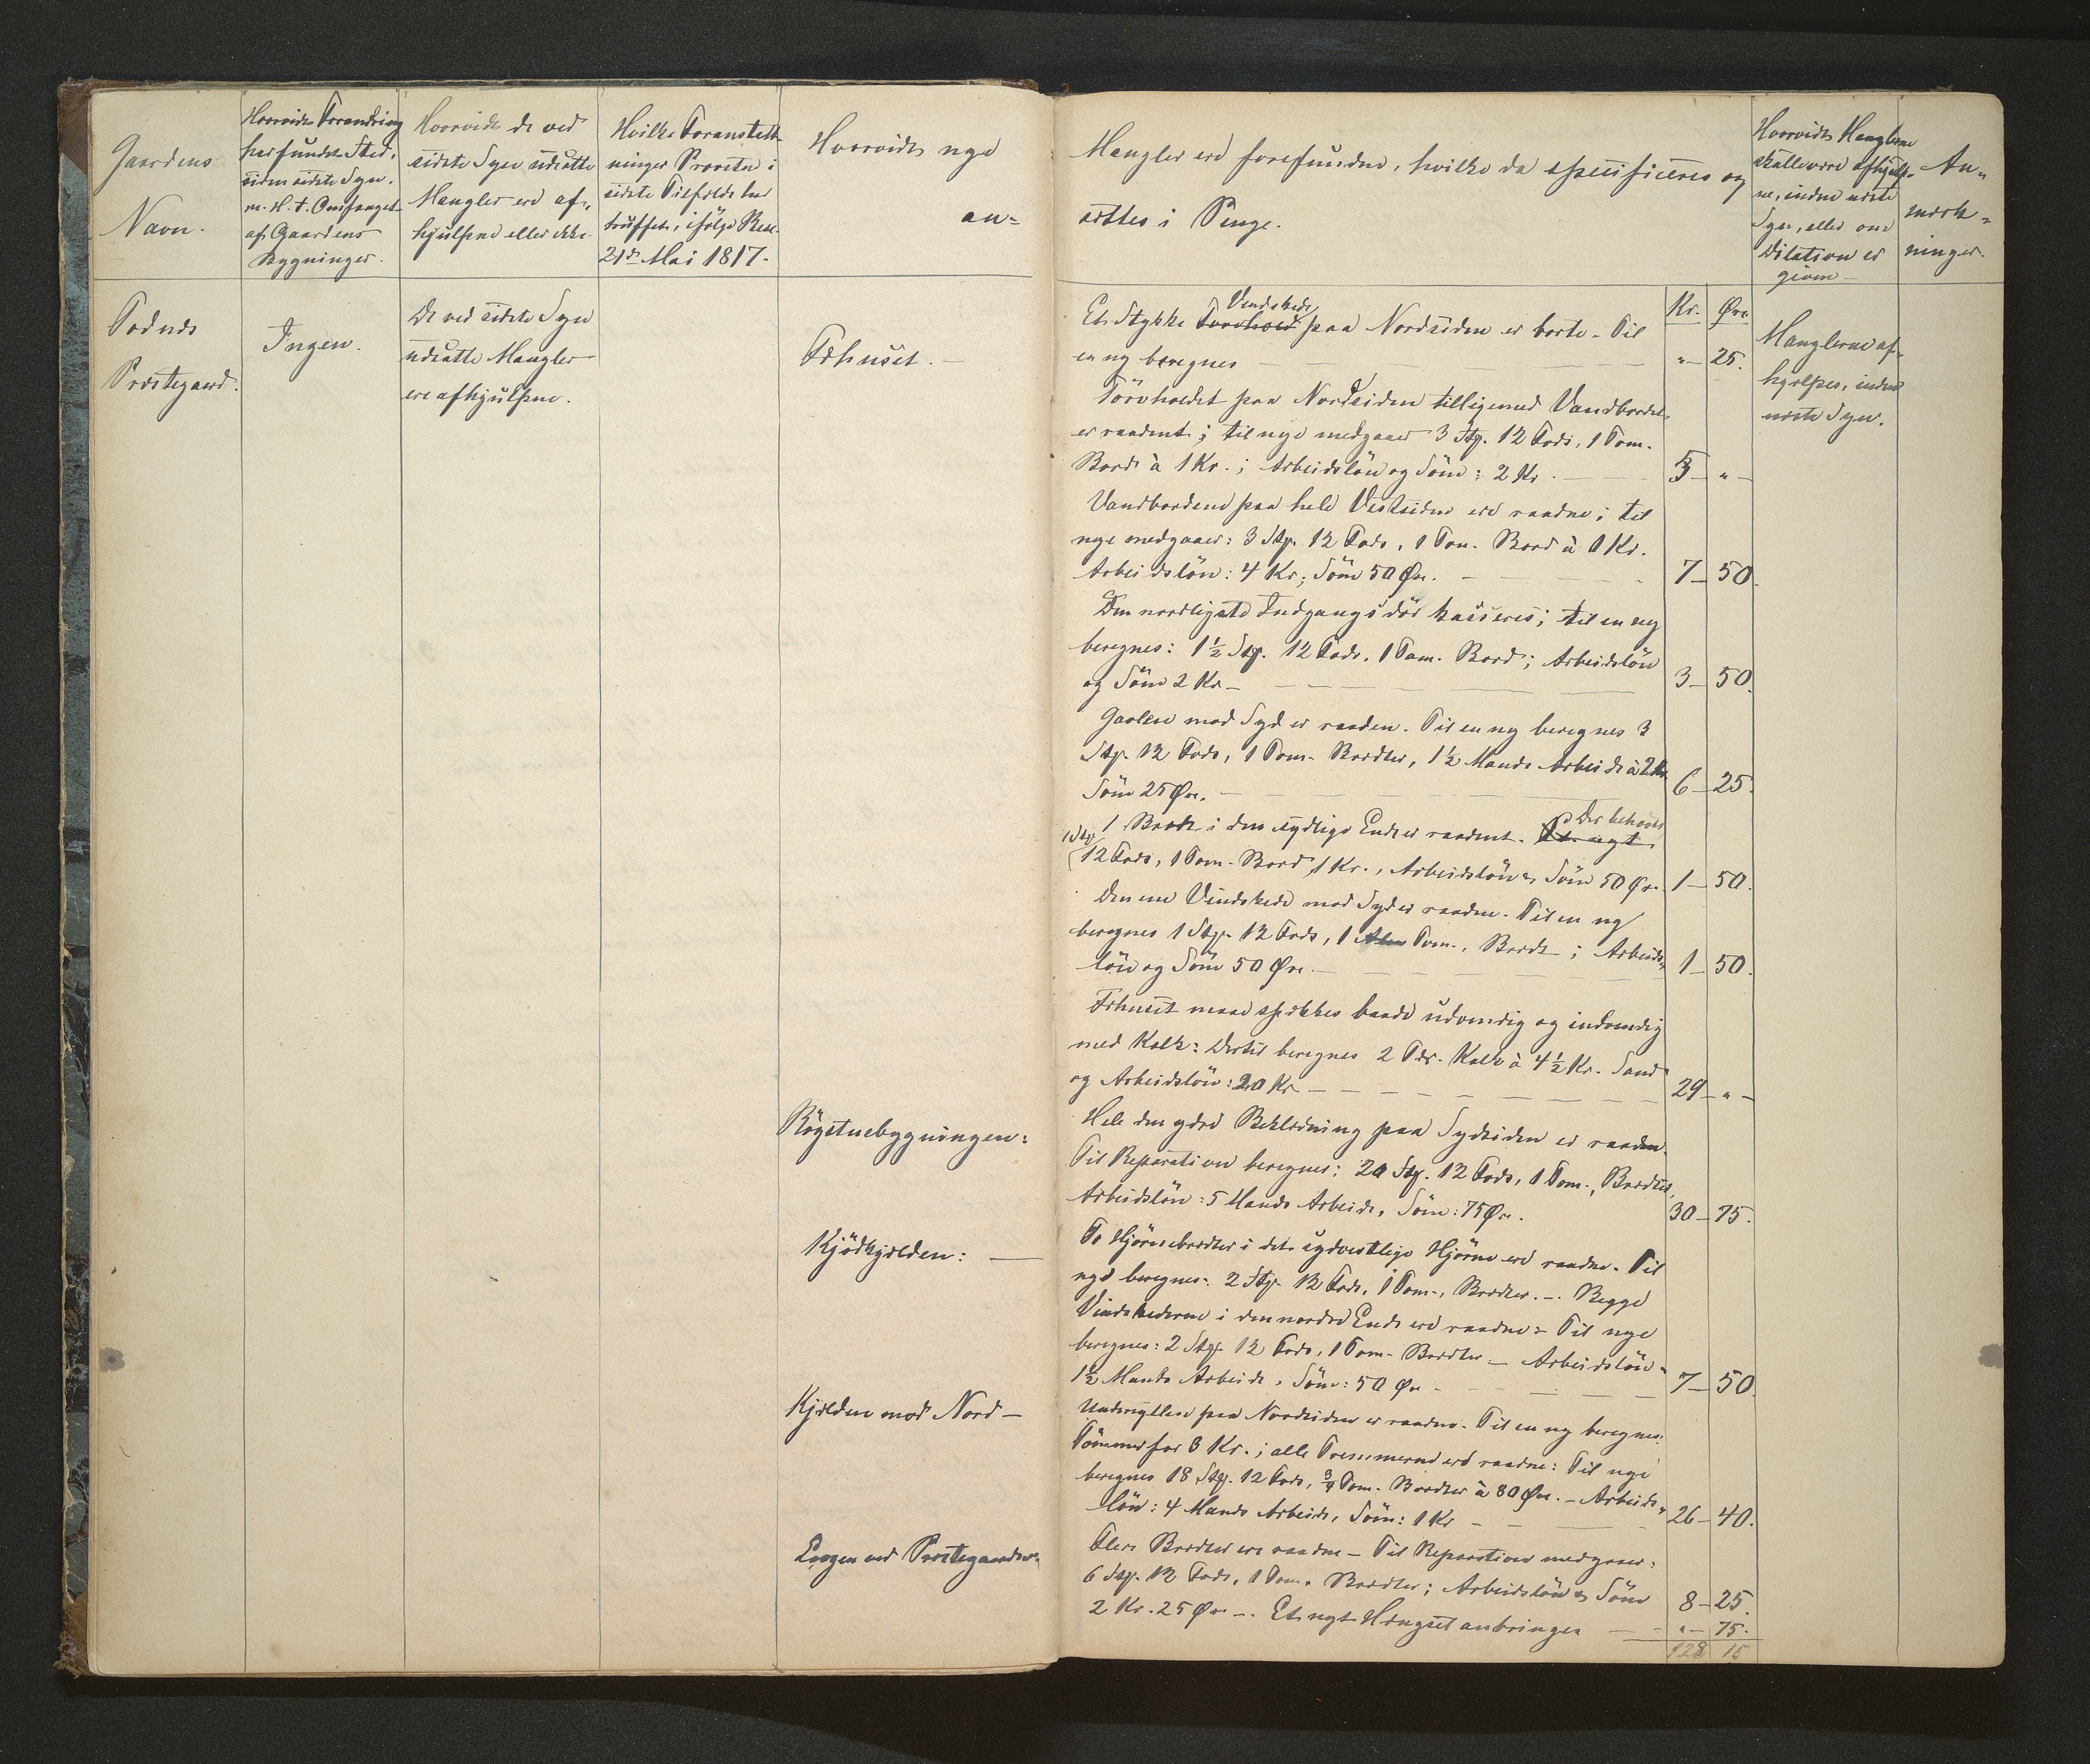 Gaardens
Navn.
Hvorvidt Forandring
har fundet Sted,
siden sidste Syn,
m. H. t. Omfanget
af Gaardens
Bygninger.
Hvorvidt de ved
sidste Syn udsatte
Mangler ere af-
hjulpne eller ikke
Hvilke Foranstalt-
ninger Provsten i
sidste Tilfælde har
truffet, ifölge Resc.
21de Mai 1817.
Hvorvidt nye
an=
Mangler ere forefundne, hvilke da specificeres og
sættes i Penge.
Hvorvidt Manglerne
skulle være afhjulp-
ne, inden næste
Syn, eller om
Dilation er
given
An-
mærk-
ninger.
Kr. Øre
Prestegaard.
Ingen.
De ved sidste Syn
udsatte Mangler
ere afhjulpne.
Fæhuset. —
Vindskede
Et Stykke Torvhold paa Nordsiden er borte. Til
en ny beregnes — " — 25.
Törvholdet paa Nordsiden tilligemed Vandbordet
er raadent; til nye medgaar 3 Stp. 12 Fods, 1 Tom.
Bord à 1 Kr.; Arbeidslön og Söm: 2 Kr. — 5 — " —
Vandbordene paa hele Vestsiden ere raadne; til
nye medgaaer: 3 Stp. 12 Fods, 1 Tom. Bord à 1 Kr.
Arbeidslön: 4 Kr; Söm 50 Øre. — 7 — 50.
Den nordligste Indgangsdör kasseres; til en ny
beregnes: 1½ Stp. 12 Fods, 1 Tom. Bord; Arbeidslön
og Söm 2 Kr — 3 — 50.
Gavlen mod Syd er raaden. Til en ny beregnes 3
Stp. 12 Fods, 1 Tom. Bordter, 1½ Mands Arbeide à 2 Kr
Söm 25 Øre. — 6 — 25.
Der behöves
1 Bordt i den sydlige Ende er raadent. Et nyt
1 Stp.
12 Fods, 1 Tom. Bord 1 Kr., Arbeidslön & Söm 50 Øre 1 — 50.
Den ene Vindskede mod Syd er raaden. Til en ny
beregnes 1 Stp. 12 Fods, 1 Alen Tom., Bordt; Arbeids-
lön og Söm 50 Øre. — 1 — 50.
Fæhuset maa spækkes baade udvendig og indvendig
med Kalk: Dertil beregnes 2 Tdr. Kalk à 4½ Kr. Sand
og Arbeidslön: 20 Kr — 29 — " —
Rögstuebygningen:
Hele den ydre Beklædning paa Sydsiden er raaden.
Til Reparation beregnes: 20 Stp. 12 Fods, 1 Tom., Bordter,
Arbeidslön: 5 Mands Arbeide, Söm: 75 Øre. 30 — 75.
Kjödkjelden: —
To Hjörnebordter i det sydvestlige Hjörne ere raadne. Til
nye beregnes: 2 Stp. 12 Fods, 1 Tom., Bordter. — Begge
Vindskederne i den nordre Ende ere raadne: Til nye
beregnes: 2 Stp. 12 Fods, 1 Tom. Bordter — Arbeidslön
1½ Mands Arbeide, Söm: 50 Øre — 7 — 50.
Kjelden mod Nord —
Undersyllen paa Nordsiden er raaden. Til en ny beregnes:
Tömmer for 3 Kr.; alle Tremmerne ere raadne: Til nye
beregnes 18 Stp. 12 Fods, ¾ Tom. Bordter à 80 Øre. — Arbeids-
lön: 4 Mands Arbeide, Söm: 1 Kr — 26 — 40.
ved Prestegaarden
Flere Bordter ere raadne — Til Reparation medgaaer:
6 Stp. 12 Fods, 1 Tom. Bordter; Arbeidslön & Söm
2 Kr. 25 Øre —. 8 — 25.
Et nyt Hengsel anbringes — " — 75.
128 15
Manglerne af-
hjelpes, inden
næste Syn.